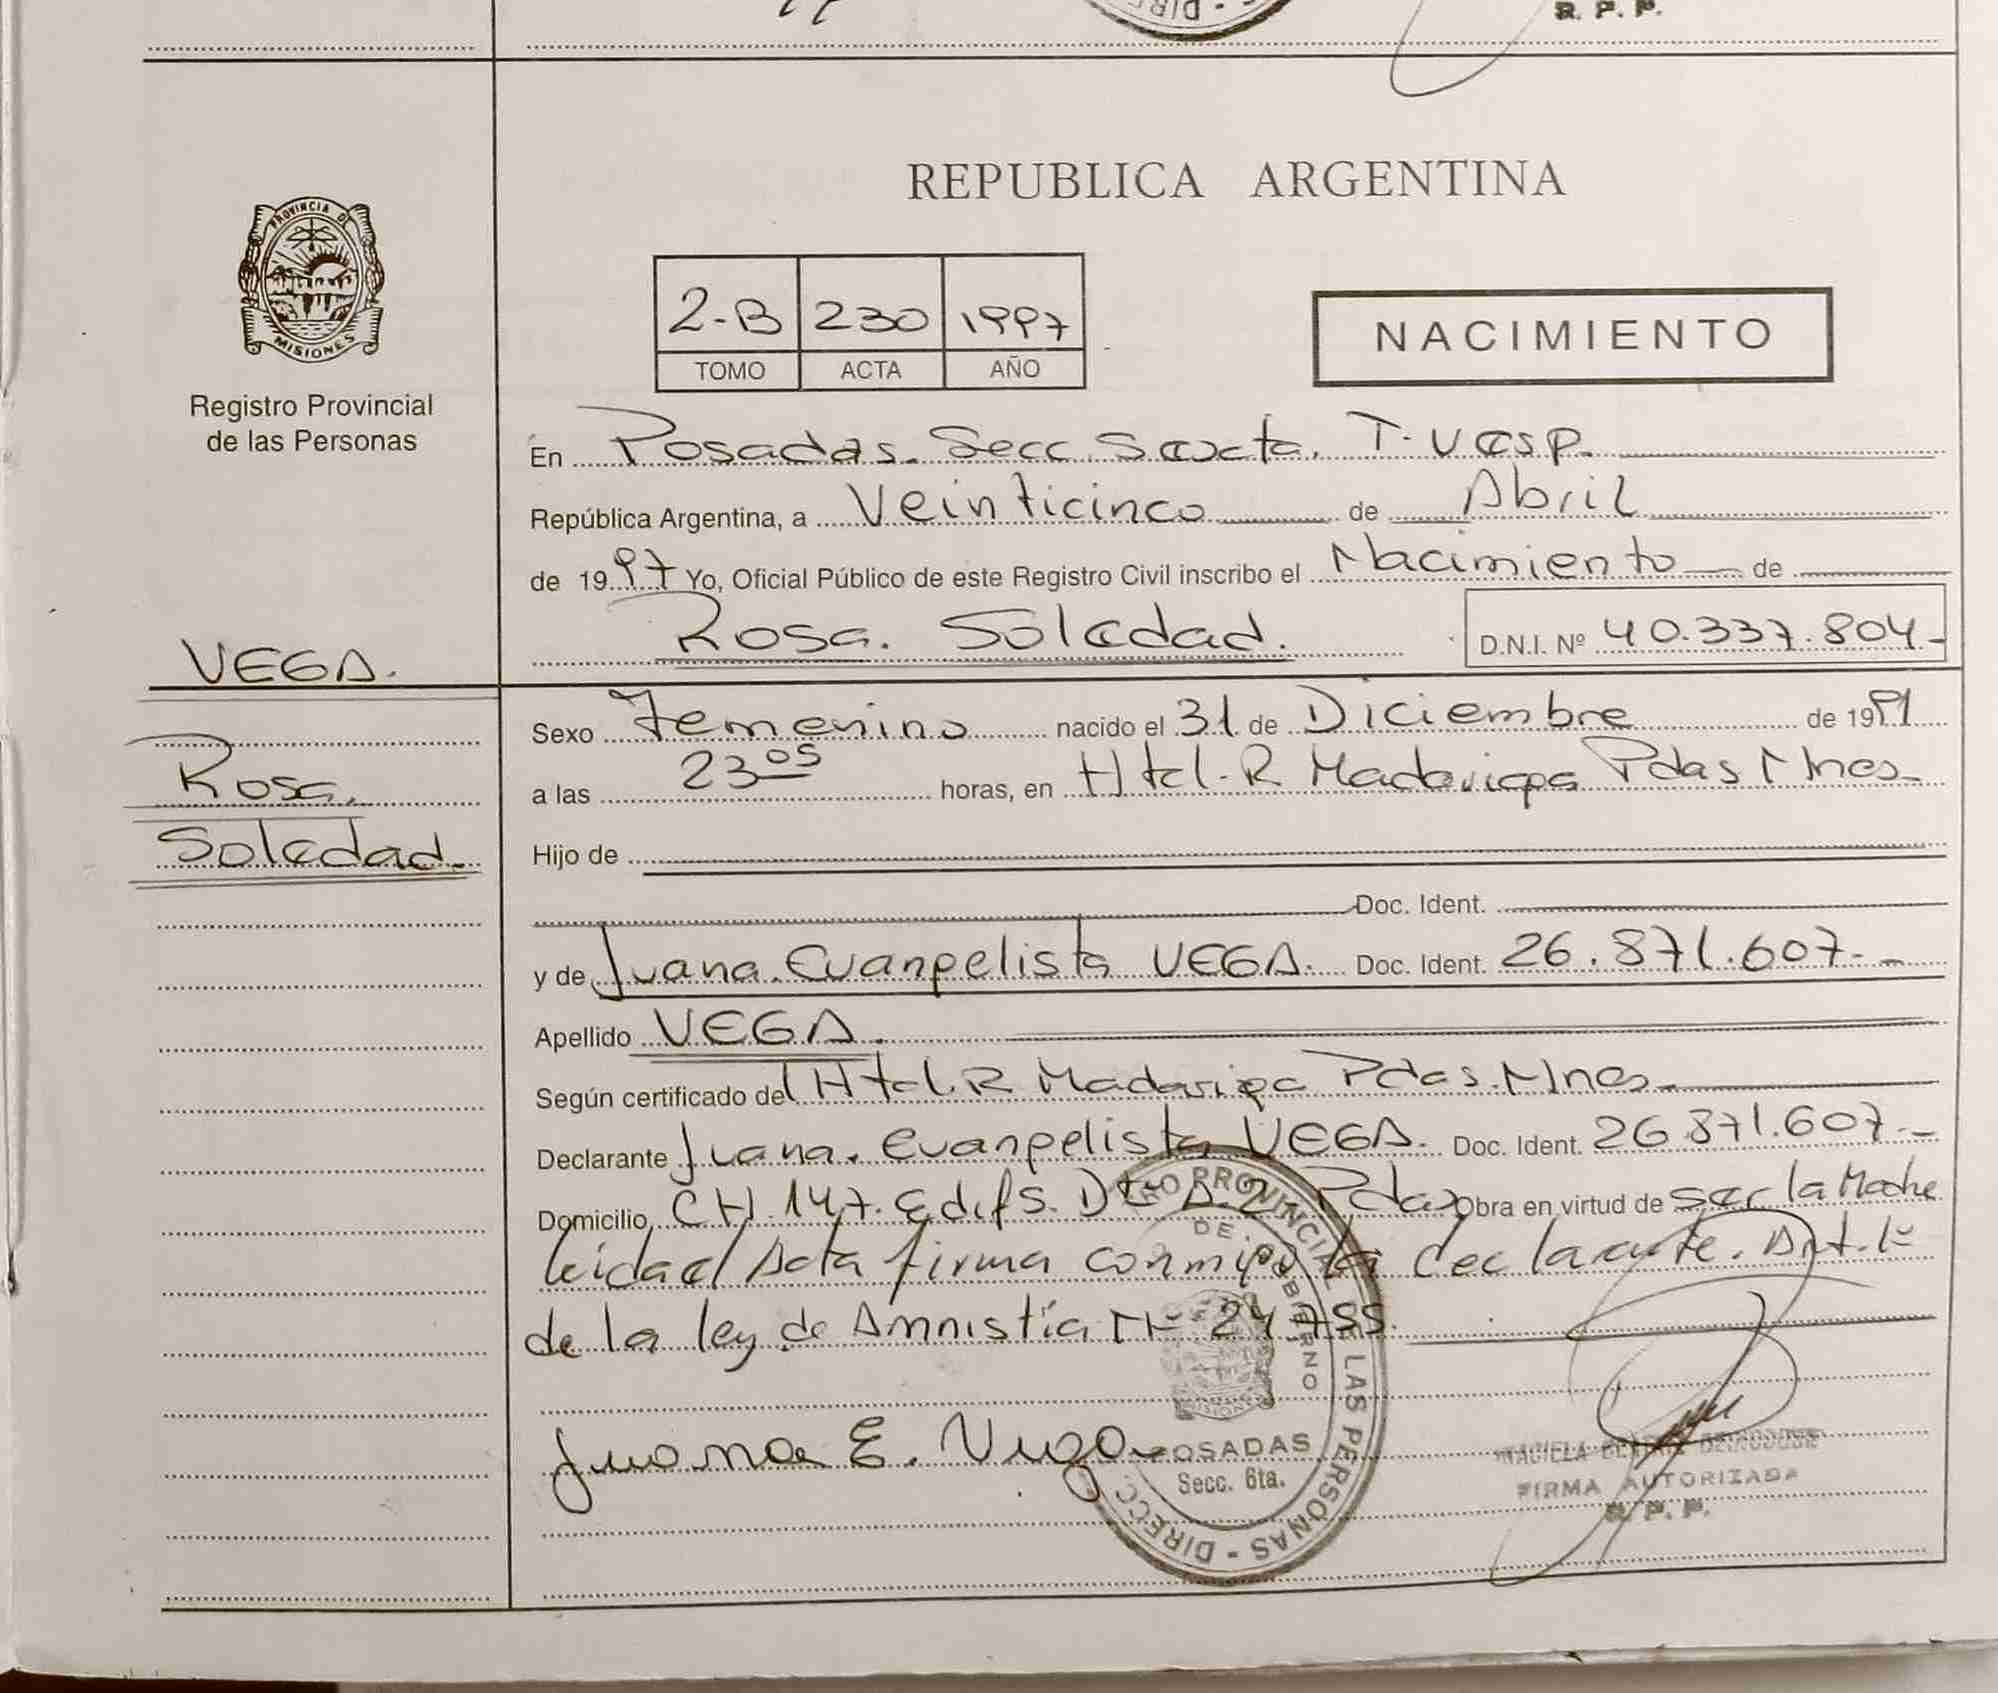 R. P. P.
PROVINCIA DE
MISIONES
Registro Provincial
de las Personas
REPUBLICA ARGENTINA
2-B 230 1997
TOMO ACTA AÑO
NACIMIENTO
En Posadas. Secc Sexta. T. Vesp.
República Argentina, a Veinticinco de Abril
de 1997 Yo, Oficial Público de este Registro Civil inscribo el Nacimiento de
Rosa. Soledad. D.N.I. Nº 40.337.804-
VEGA.
Rosa.
Soledad.
Sexo Femenino nacido el 31 de Diciembre de 1991
a las 23 05 horas, en Htal. R Madariaga Pdas Mnes.
Hijo de
Doc. Ident.
y de Juana. Evangelista VEGA. Doc. Ident. 26.871.607.-
Apellido VEGA.
Según certificado del Htal. R Madariaga Pdas. Mnes.
Declarante Juana. Evangelista VEGA. Doc. Ident. 26.871.607.-
Domicilio CH. 147. Edif 5. Dto A. 2 Pdas Obra en virtud de ser la Madre
leida el Acta firma conmigo la declarante. Art. 1º
de la ley de Amnistía Nº 24755.
Juana E. Vega
PROVINCIAL DE LAS PERSONAS - DIRECC
DE GOBIERNO
MISIONES
POSADAS
Secc. 6ta.
FIRMA AUTORIZADA
R. P. P.